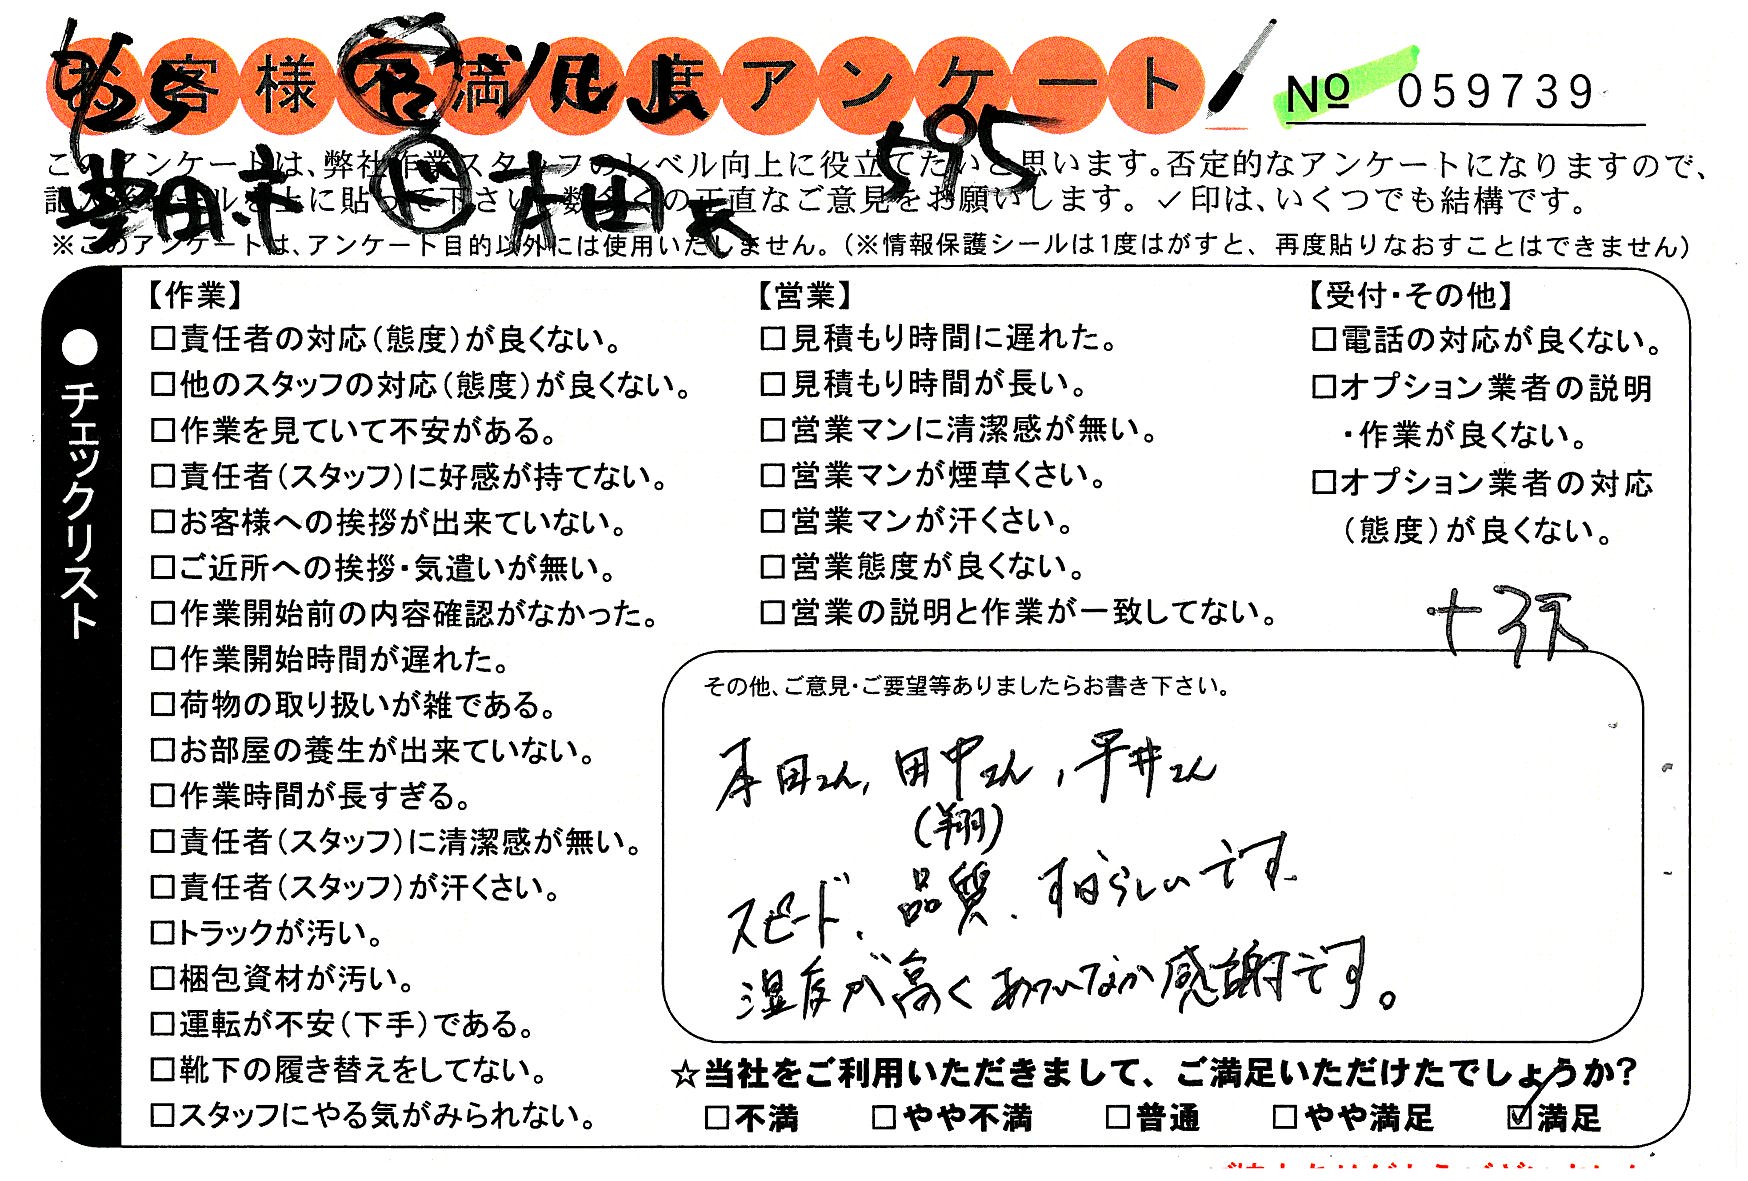 お客様不満足度アンケート
No 059739
6/25
595
このアンケートは、弊社作業スタッフのレベル向上に役立てたいと思います。否定的なアンケートになりますので、
記入後シールを上に貼って下さい。数多くの正直なご意見をお願いします。✓印は、いくつでも結構です。
本田
※このアンケートは、アンケート目的以外には使用いたしません。(※情報保護シールは1度はがすと、再度貼りなおすことはできません)
●チェックリスト
【作業】
□責任者の対応(態度)が良くない。
□他のスタッフの対応(態度)が良くない。
□作業を見ていて不安がある。
□責任者(スタッフ)に好感が持てない。
□お客様への挨拶が出来ていない。
□ご近所への挨拶・気遣いが無い。
□作業開始前の内容確認がなかった。
□作業開始時間が遅れた。
□荷物の取り扱いが雑である。
□お部屋の養生が出来ていない。
□作業時間が長すぎる。
□責任者(スタッフ)に清潔感が無い。
□責任者(スタッフ)が汗くさい。
□トラックが汚い。
□梱包資材が汚い。
□運転が不安(下手)である。
□靴下の履き替えをしてない。
□スタッフにやる気がみられない。
【営業】
□見積もり時間に遅れた。
□見積もり時間が長い。
□営業マンに清潔感が無い。
□営業マンが煙草くさい。
□営業マンが汗くさい。
□営業態度が良くない。
□営業の説明と作業が一致してない。
【受付・その他】
□電話の対応が良くない。
□オプション業者の説明
・作業が良くない。
□オプション業者の対応
(態度)が良くない。
その他、ご意見・ご要望等ありましたらお書き下さい。
本田さん, 田中さん, 平井さん
(翔)
スピード、品質、すばらしいです。
湿度が高くあついなか感謝です。
☆当社をご利用いただきまして、ご満足いただけたでしょうか?
□不満 □やや不満 □普通 □やや満足 ☑満足